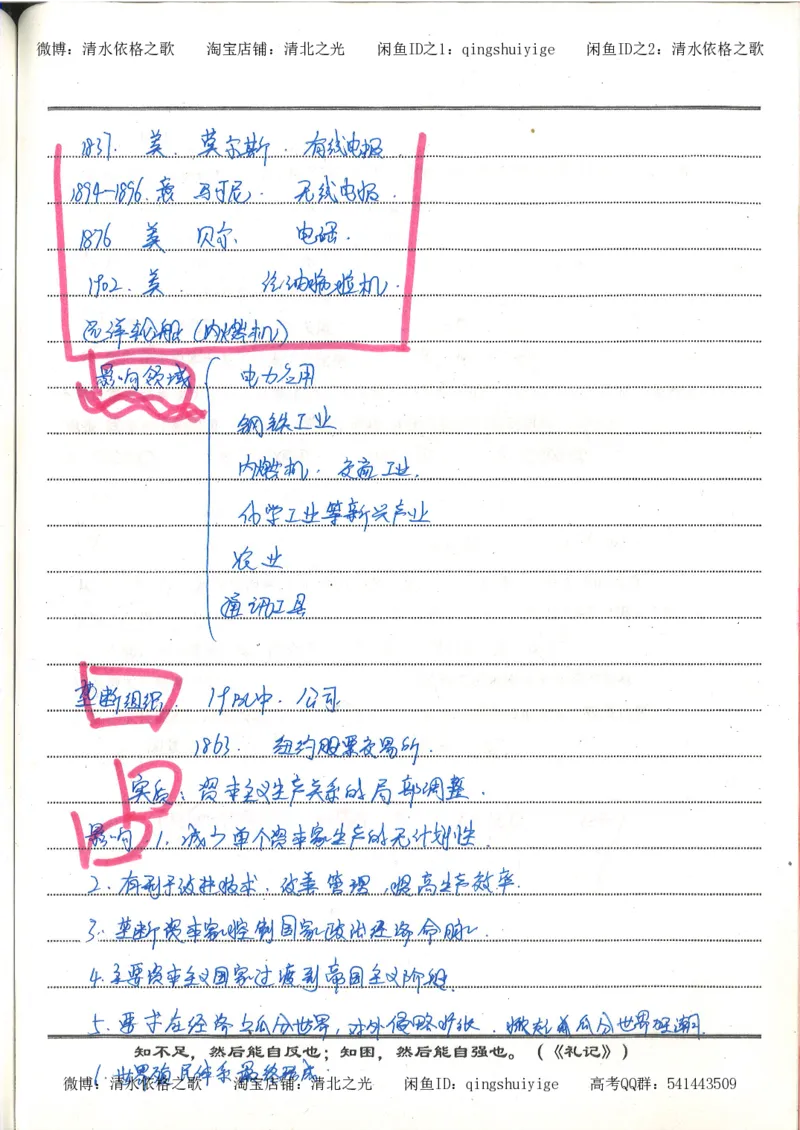 微博：清水依格之歌 淘宝店铺：清北之光 闲鱼ID之1：qingshuiyige 闲鱼ID之2：清水依格之歌
1837. 美. 莫尔斯. 有线电报
1894—1896. 意 马可尼. 无线电报.
1876 美 贝尔 电话.
1902. 美. 汽油拖拉机.
远洋轮船（内燃机）
影响领域 电力应用
钢铁工业
内燃机. 交通工业.
化学工业等新兴产业
农业
通讯工具
垄断组织. 19C中. 公司
1863. 纽约股票交易所.
实质：资本主义生产关系的局部调整.
影响 1. 减少单个资本家生产的无计划性.
2. 有利于改进技术. 改善管理，提高生产效率.
3. 垄断资本家控制国家政治经济命脉.
4. 主要资本主义国家过渡到帝国主义阶段.
5. 要求在经济上瓜分世界，对外侵略扩张. 掀起瓜分世界狂潮.
知不足，然后能自反也；知困，然后能自强也。（《礼记》）
世界殖民体系最终形成.
微博：清水依格之歌 淘宝店铺：清北之光 闲鱼ID：qingshuiyige 高考QQ群：541443509